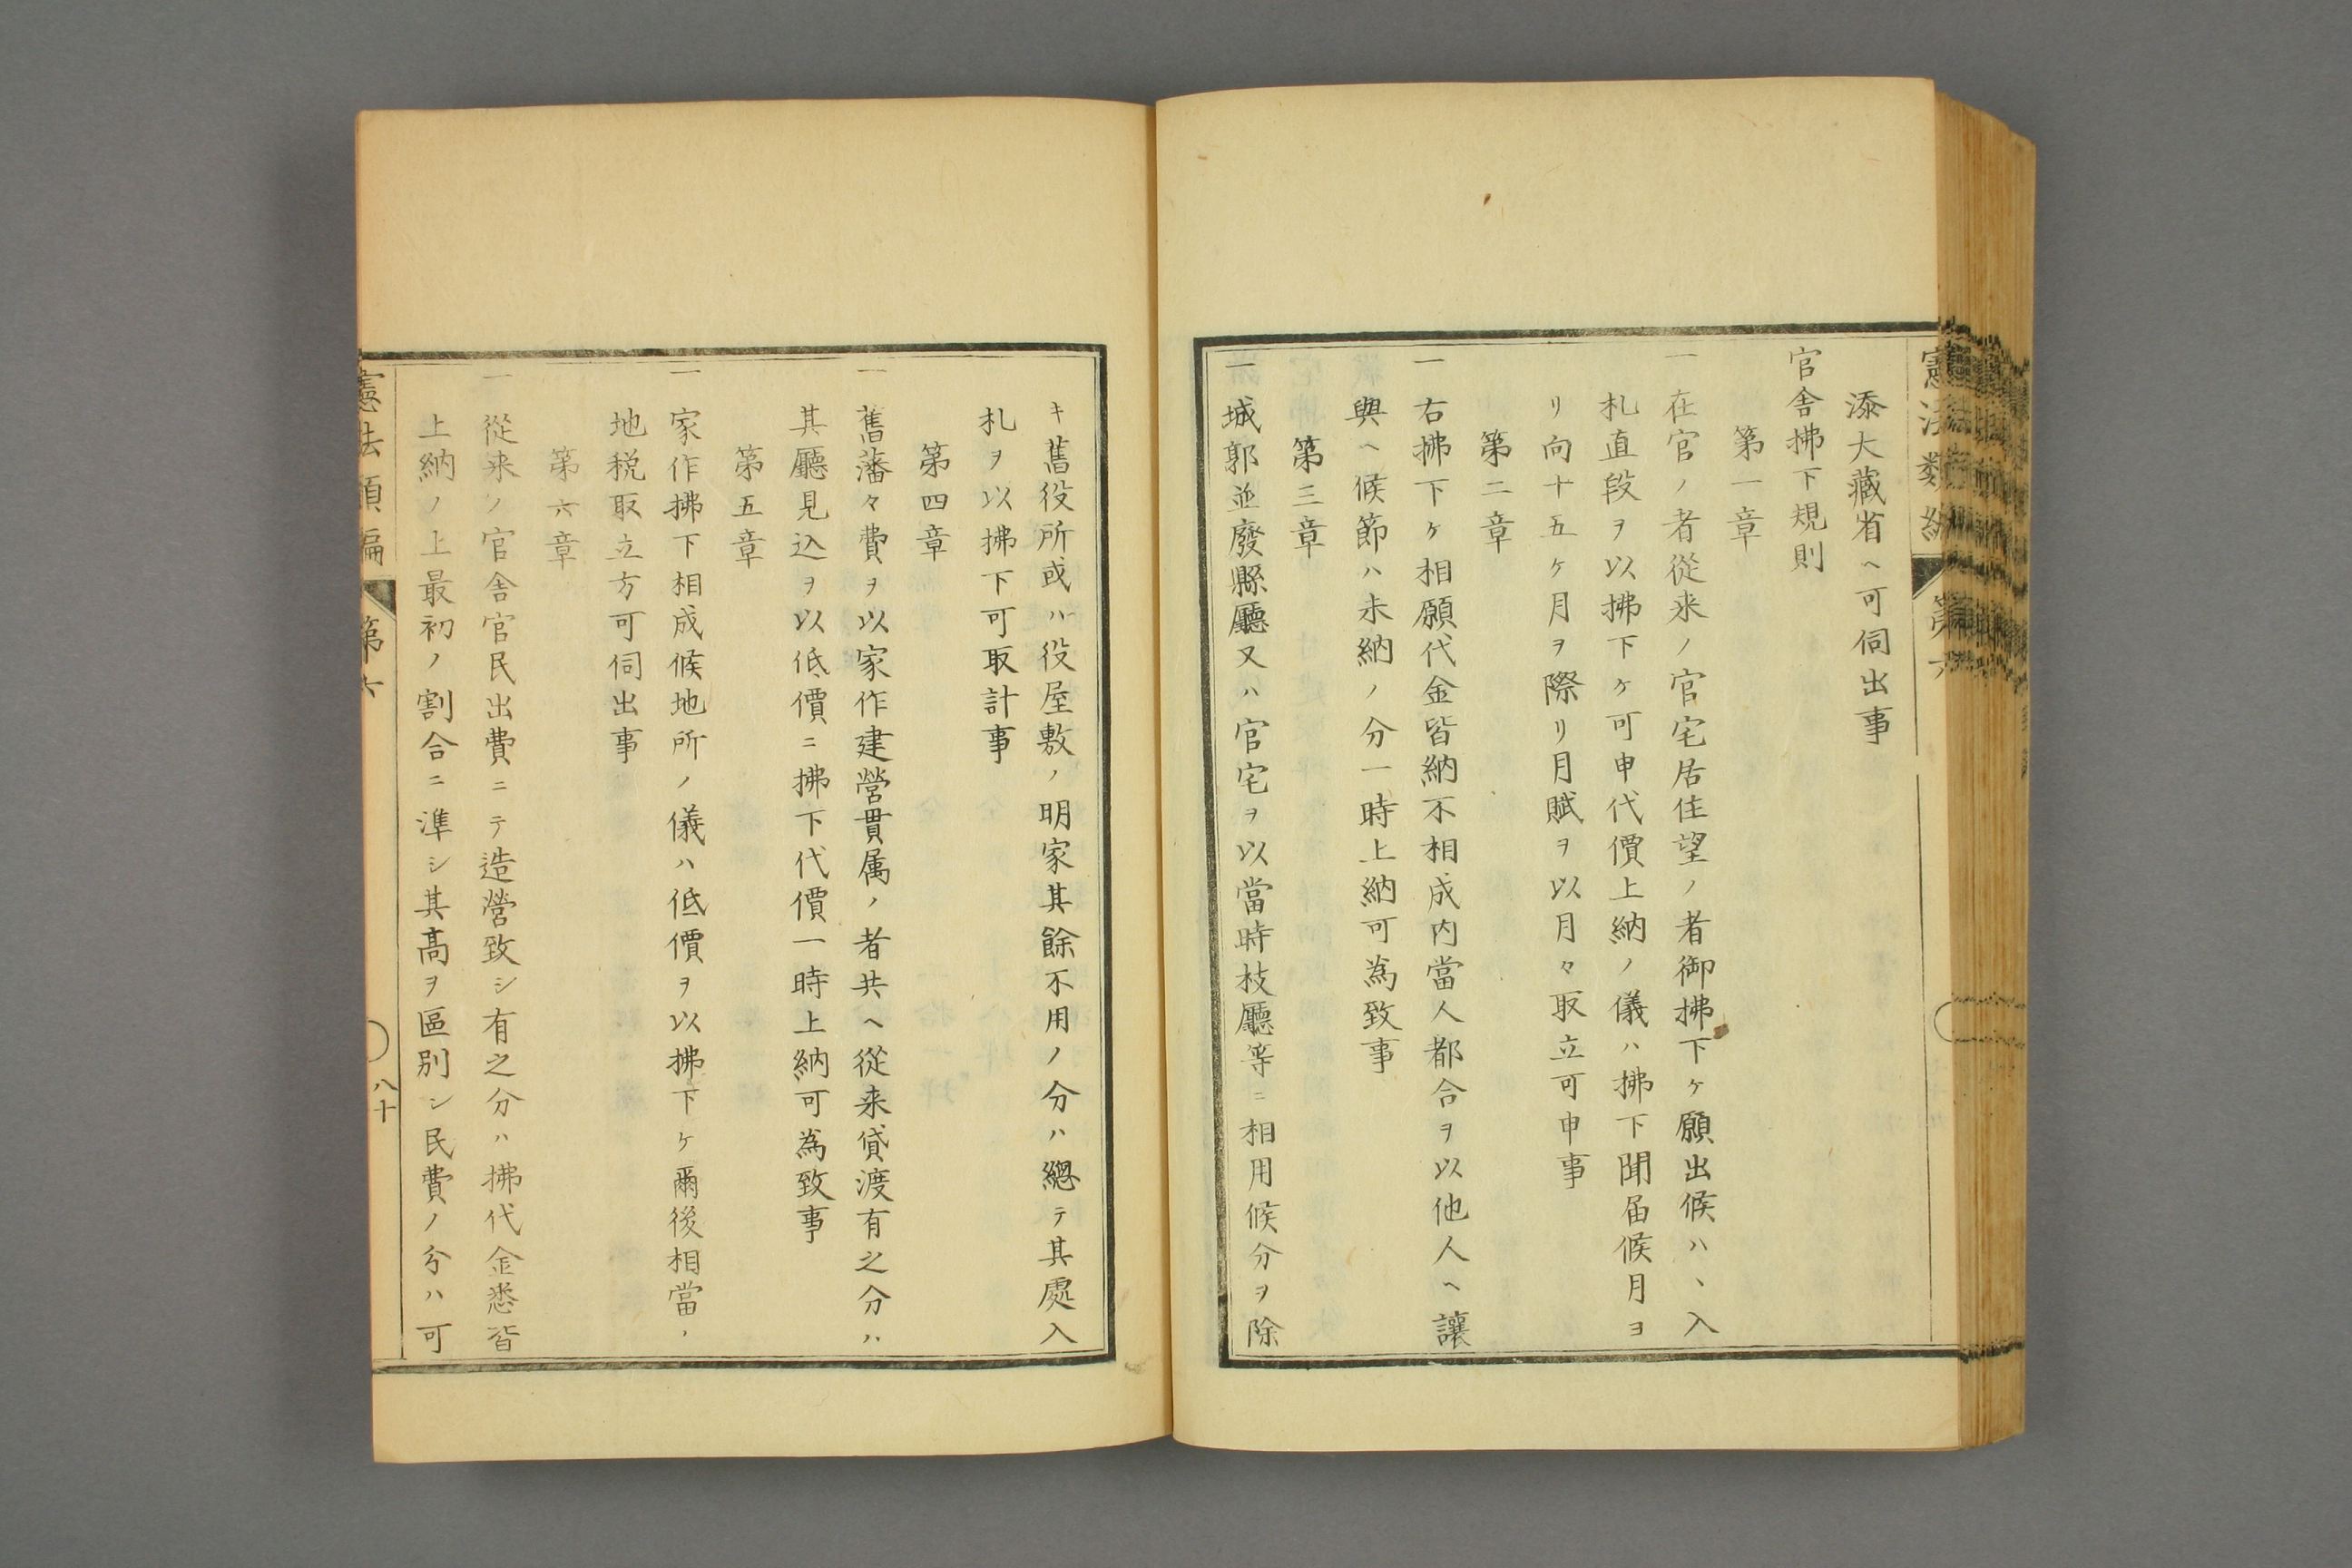 憲法類編
第六
添大藏省ヘ可伺出事
官舎拂下規則
第一章
一在官ノ者從来ノ官宅居住望ノ者御拂下ケ願出候ハヽ入
札直段ヲ以拂下ケ可申代價上納ノ儀ハ拂下聞届候月ヨ
リ向十五ケ月ヲ際リ月賦ヲ以月々取立可申事
第二章
一右拂下ケ相願代金皆納不相成内當人都合ヲ以他人ヘ讓
與ヘ候節ハ未納ノ分一時上納可為致事
第三章
一城郭並廢縣廳又ハ官宅ヲ以當時枝廳等ニ相用候分ヲ除
キ舊役所或ハ役屋敷ノ明家其餘不用ノ分ハ總テ其處入
札ヲ以拂下可取計事
第四章
一舊藩々費ヲ以家作建營貫属ノ者共ヘ從来貸渡有之分ハ
其廳見込ヲ以低價ニ拂下代價一時上納可為致事
第五章
一家作拂下相成候地所ノ儀ハ低價ヲ以拂下ケ爾後相當ノ
地税取立方可伺出事
第六章
一從来ノ官舎官民出費ニテ造營致シ有之分ハ拂代金悉皆
上納ノ上最初ノ割合ニ準シ其高ヲ區別シ民費ノ分ハ可
憲法類編
第六
八十